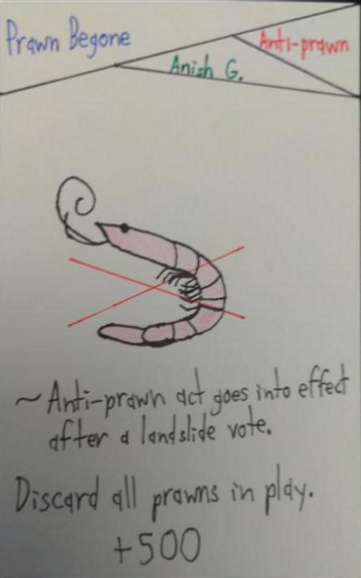 Prawn Begone
Anti-prawn
Anish G.
~Anti-prawn act goes into effect
after a landslide vote.
Discard all prawns in play.
+500